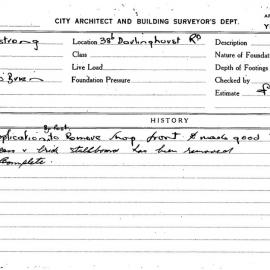 CITY ARCHITECT AND BUILDING SURVEYOR'S DEPT.
strong Location 38b Darlinghurst Rd Description
Class Nature of Foundat
Live Load Depth of Footings
O'Brien Foundation Pressure Checked by
Estimate £
HISTORY
plication to Remove shop front & make good
& brick stallboard has been removed
Complete.